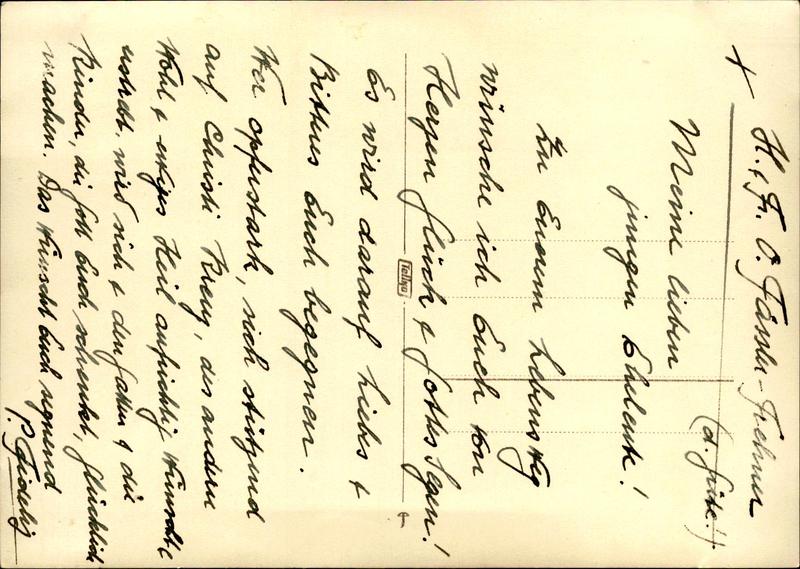 +
H. & F. O. Fässler-Frehner
(d. Güte!).
Meine lieben
jungen Eheleute!
Zu Eurem Lebensweg
wünsche ich Euch von
Herzen Glück & Gottes Segen!
Es wird darauf Liebes &
Bitteres Euch begegnen.
Wer opferstark, sich stützend
auf Christi Kreuz, des andern
Wohl & ewiges Heil aufrichtig wünscht &
erstrebt, wird sich & den Gatten & die
Kinder, die Gott Euch schenket, glücklich
machen. Das wünscht Euch segnend
P. Fidelis
Tellko